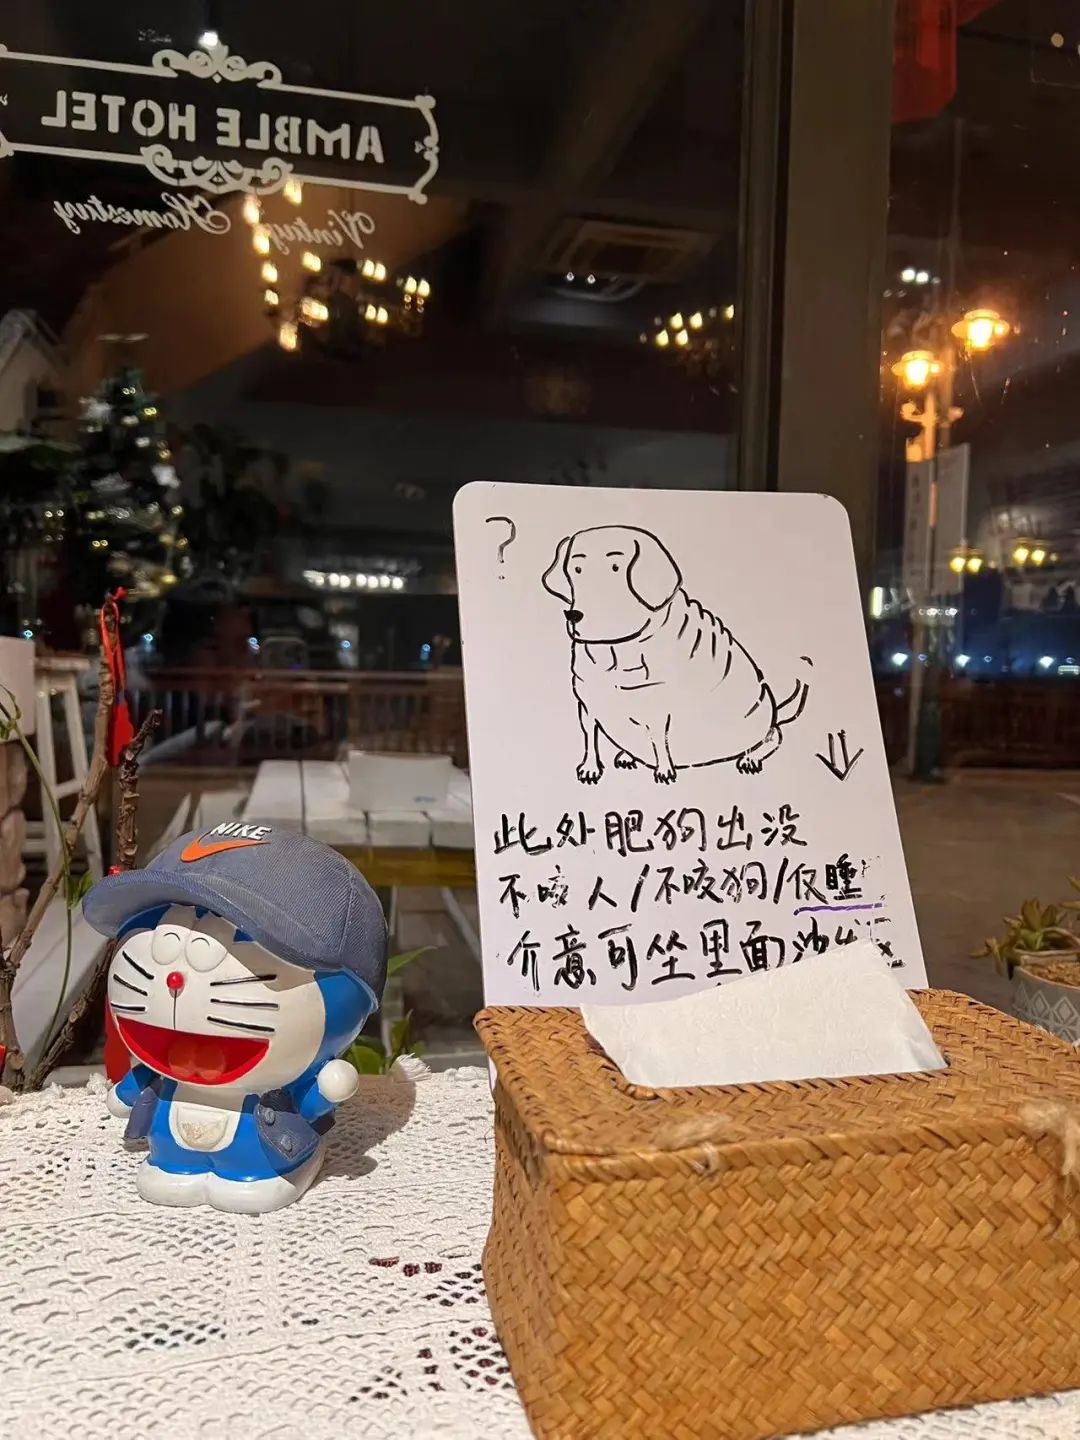 AMBLE HOTEL
Vintage Homestay
NIKE
?
此处肥狗出没
不咬人/不咬狗/仅睡
介意可坐里面沙发区